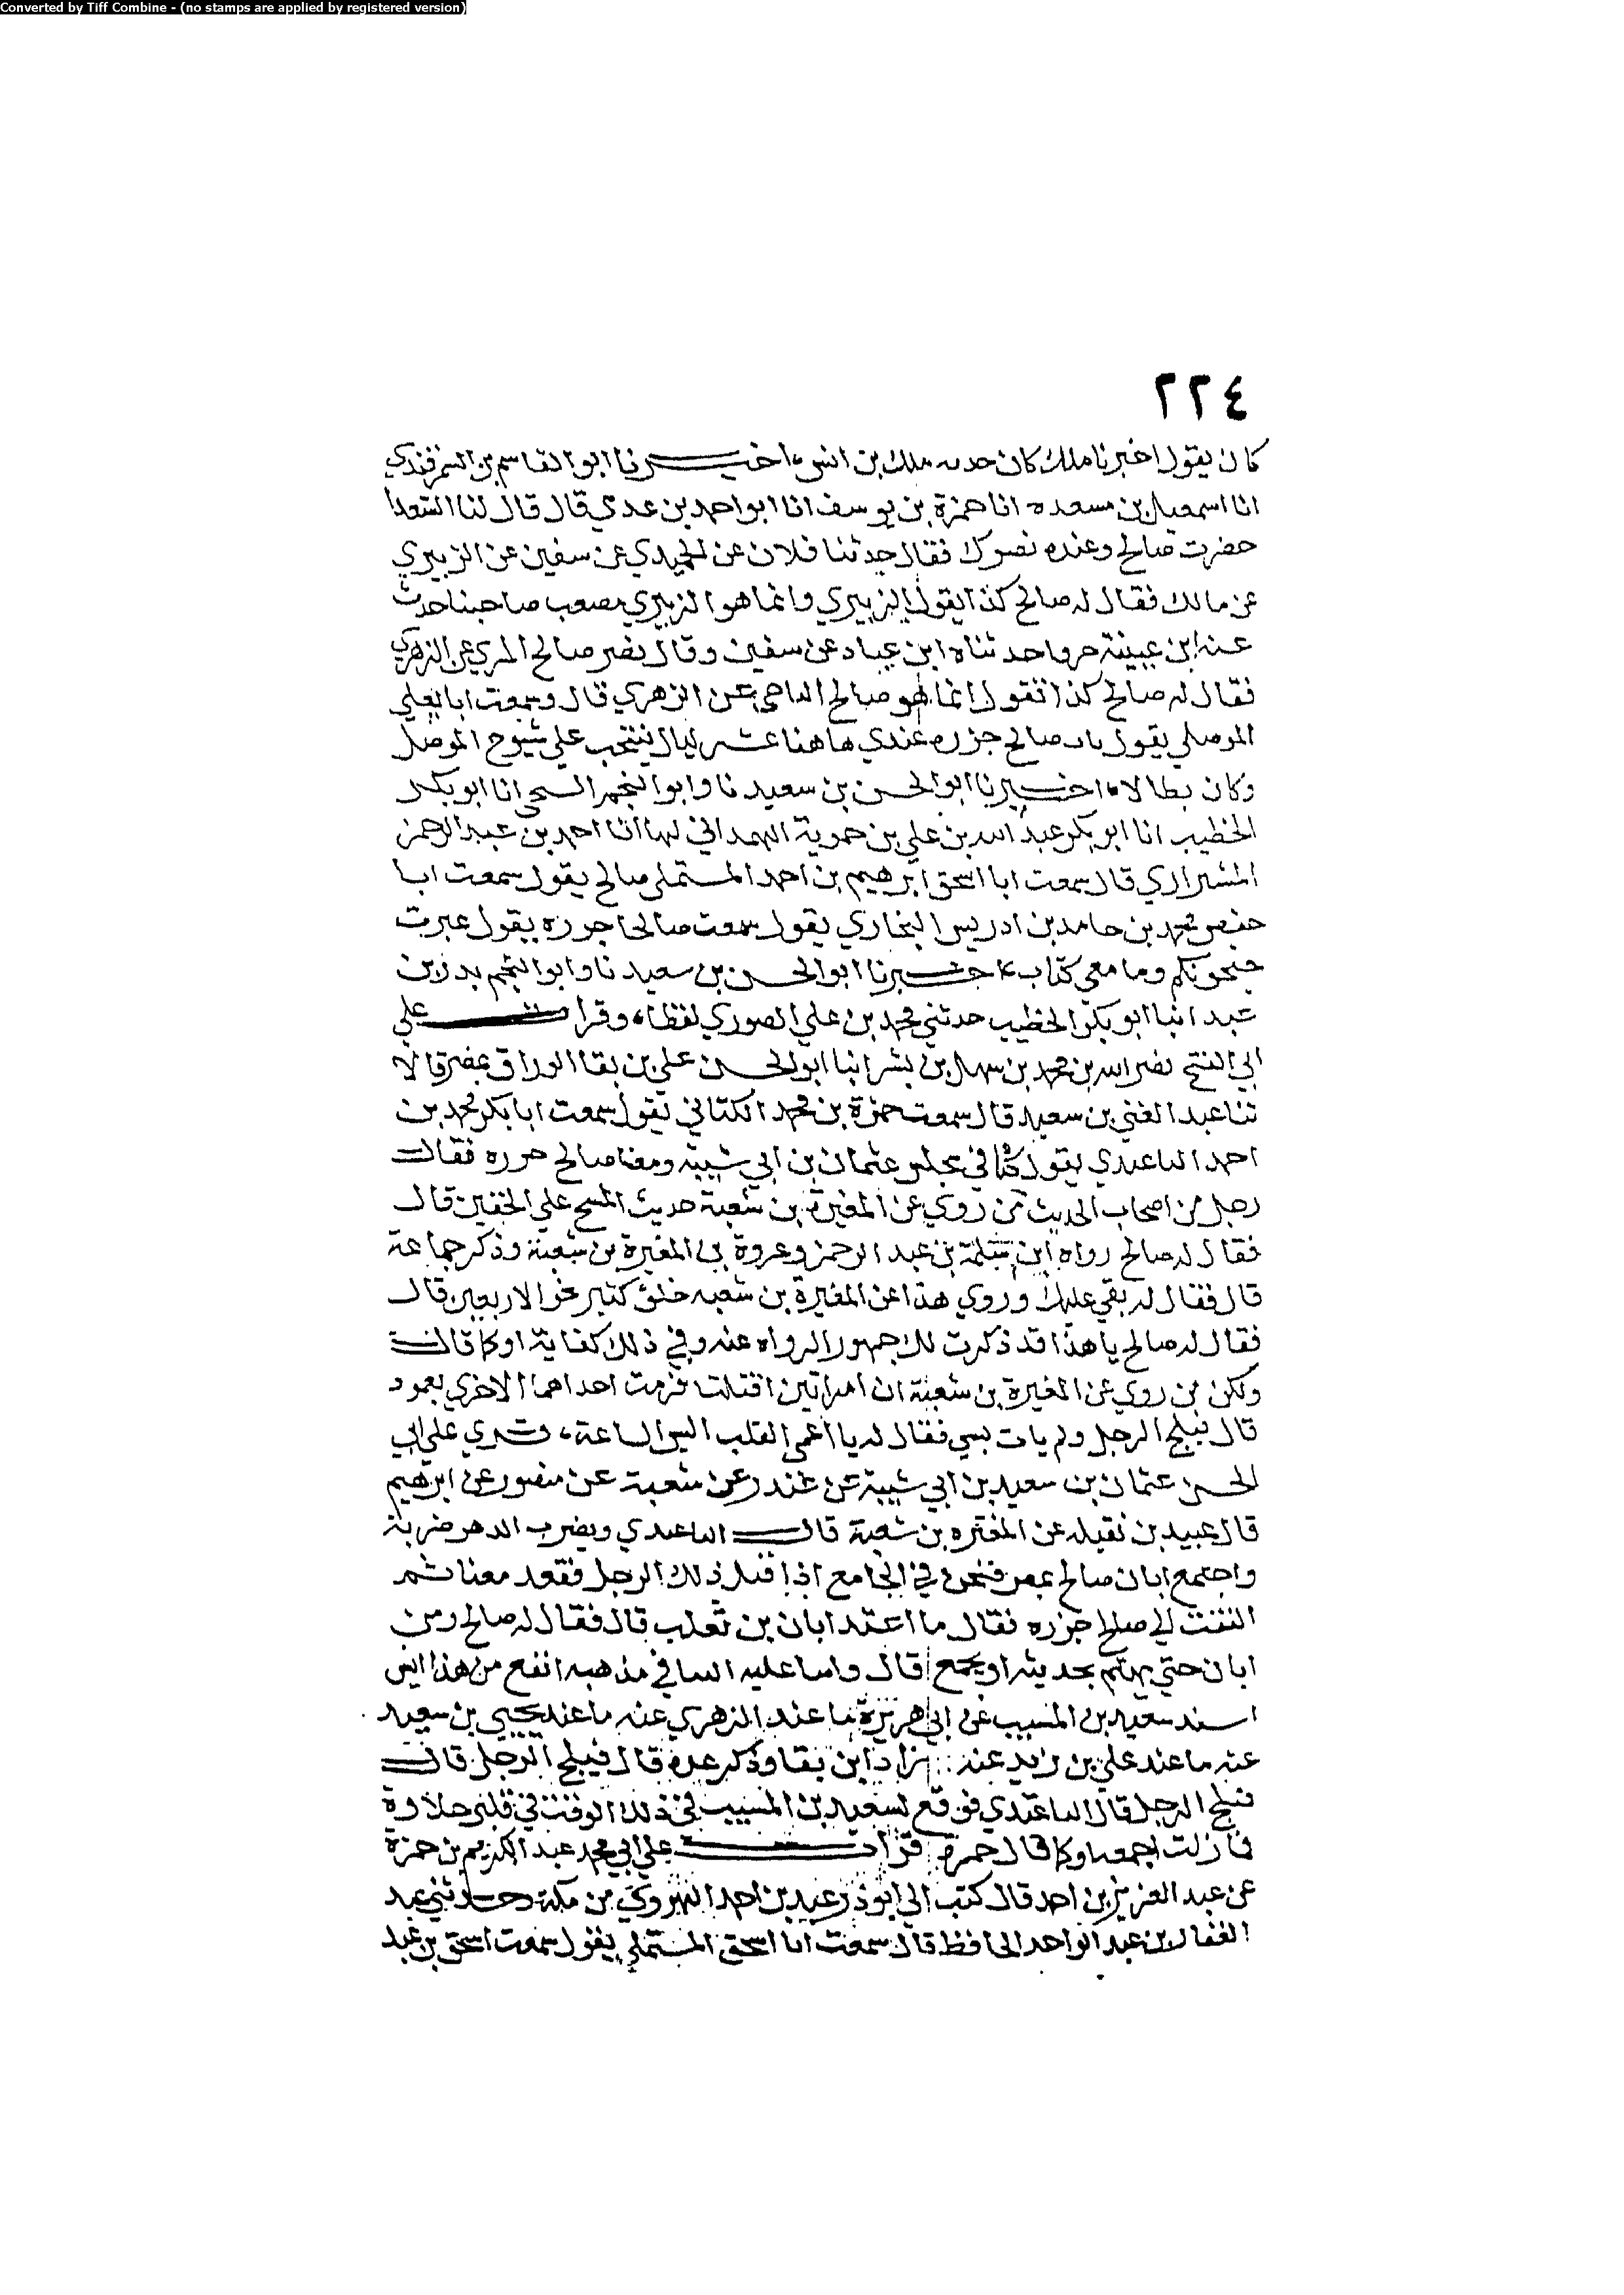 Converted by Tiff Combine - (no stamps are applied by registered version)
٢٢٤
كان يقول اخبرنا ملك كان حدثه ملك بن انس، اخبرنا ابو القاسم بن السمرقندي
انا اسمعيل بن مسعده انا حمزة بن يوسف انا ابو احمد بن عدي قال قال لنا السعدا
حضرت صالح وعنده نصرك فقال حدثنا فلان عن الحميدي عن سفين عن الزبيري
عن مالك فقال له صالح كذا يقول الزبيري وانما هو الزبيري مصعب صاحبنا حدث
عنه ابن عيينة حرفا حدثناه ابن عباد عن سفين وقال نصر صالح المري عن الزهري
فقال له صالح كذا تقول انما هو صالح الناجي عن الزهري قال وسمعت ابا يعلي
الموصلي يقول بات صالح جزره عندي هاهنا عشر ليال ينتخب علي شيوح الموصل
وكان بطالا، اخبرنا ابو الحسن بن سعيد نا وابو النجم السحي انا ابو بكر
الخطيب انا ابو بكر عبد الله بن علي بن حموية الهمداني بها انا احمد بن عبد الرحمن
الشيرازي قال سمعت ابا اسحق ابرهيم بن احمد المستملي صالح يقول سمعت ابا
حفص محمد بن حامد بن ادريس البخاري يقول سمعت صالحا جزره يقول عبرت
جيحونكم وما معي كتاب، اخبرنا ابو الحسن بن سعيد نا وابو النجم بدر بن
عبد انبا ابو بكر الخطيب حدثني محمد بن علي الصوري لفظا، وقرات علي
ابي الفتح نصر الله بن محمد بن سهل بن بشر انبا ابو الحسن علي بن بقا الوراق بمصر قالا
ثنا عبد الغني بن سعيد قال سمعت حمزة بن محمد الكتاني يقول سمعت ابا بكر محمد بن
احمد الباغندي يقول كنا في مجلس عثمان بن ابي شيبة ومعنا صالح جزره فقال
رجل من اصحاب الحديث من روي عن المغيرة بن شعبة حديث المسح علي الخفين قال
فقال له صالح رواه ابن سلمة بن عبد الرحمن وعروة بن المغيرة بن شعبة وذكر جماعة
قال فقال له بقي عليك وروي هذا عن المغيرة بن شعبه خلق كثير نحو الاربعين قال
فقال له صالح يا هذا قد ذكرت لك جمهور الرواه عنه وفي ذلك كفاية او كما قال
ولكن من روي عن المغيرة بن شعبة ان امراتين اقتلتا فرمت احداهما الاخري بعمود
قال فبلح الرجل ولم يات بشي فقال له يا اعمي القلب اليس الساعة، قري علي ابي
الحسن عثمان بن سعيد بن ابي شيبة عن غندر عن شعبة عن منصور عن ابرهيم
قال عبيد بن نفيله عن المغيره بن شعبة قال الباغندي ويضرب الدهر ضربة
واجتمع ابان صالح بمصر فنحن في الجامع اذ اقبل ذلك الرجل فقعد معنا ثم
التفت الي صالح جزره فقال ما اسند ابان بن تغلب قال فقال له صالح ومن
ابان حتي يهتم بحديثه او يجمع قال واسا عليه الثنا في مذهبه انفع من هذا ايش
اسند سعيد بن المسيب عن ابي هريرة ما عند الزهري عنه ما عند يحيي بن سعيد
عنه ما عند علي بن زيد عنه زاد ابن بقا وذكر عدة قال فبلح الرجل قال
فبلح الرجل قال الباغندي فوقع لسعيد بن المسيب في ذلك الوقت في قلبي حلاوة
فما زلت اجمعه او كما قال حمزة قرات علي ابي محمد عبد الكريم بن حمزة
عن عبد العزيز بن احمد قال كتب الي ابو ذر عبد بن احمد الهروي من مكة وحدثني عبد
الغفار بن عبد الواحد الحافظ قال سمعت ابا اسحق المستملي يقول سمعت اسحق بن عبد